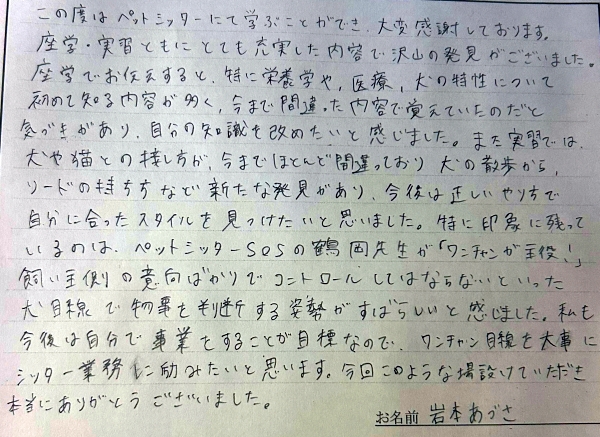 この度はペットシッターにて学ぶことができ、大変感謝しております。
座学・実習ともにとても充実した内容で沢山の発見がございました。
座学でお伝えすると、特に栄養学や、医療、犬の特性について
初めて知る内容が多く、今まで間違った内容で覚えていたのだと
気づきがあり、自分の知識を改めたいと感じました。また実習では、
犬や猫との接し方が、今までほとんど間違っており犬の散歩から、
リードの持ち方など新たな発見があり、今後は正しいやり方で
自分に合ったスタイルを見つけたいと思いました。特に印象に残って
いるのは、ペットシッターSOSの鶴岡先生が「ワンチャンが主役!」
飼い主側の意向ばかりでコントロールしてはならないといった
犬目線で物事を判断する姿勢がすばらしいと感じました。私も
今後は自分で事業をすることが目標なので、ワンチャン目線を大事に
シッター業務に励みたいと思います。今回このような場設けていただき
本当にありがとうございました。
お名前 岩本あづさ